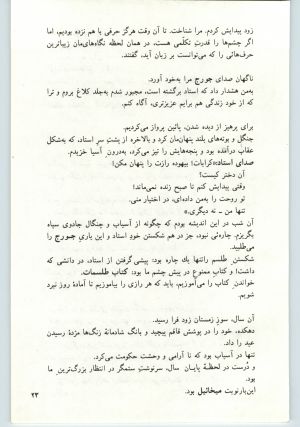 زود پیدایش کردم. مرا شناخت. تا آن وقت هرگز حرفی با هم نزده بودیم، اما
اگر چشم‌ها را قدرتِ تکلّمی هست، در همان لحظه نگاه‌های‌مان زیباترین
حرف‌هائی را که می‌توانست بر زبان آید، گفتند.
ناگهان صدای جورج مرا به‌خود آورد.
به‌من هشدار داد که استاد برگشته است، مجبور شدم به‌جلد کلاغ بروم و ترا
که از خودِ زندگی هم برایم عزیزتری، آگاه کنم.
برای پرهیز از دیده شدن، پائین پرواز می‌کردیم.
جنگل و بوته‌های بلند پنهان‌مان کرد و بالاخره از پشتِ سرِ استاد، که به‌شکل
عقاب درآمده بود و پنجه‌هایش را تیز می‌کرد، به‌درونِ آسیا خزیدم.
صدای استاد: «کرابات! بیهوده رازت را پنهان مکن!
آن دختر کیست؟
وقتی پیدایش کنم تا صبح زنده نمی‌ماند!
تو روحت را به‌من داده‌ای، در اختیار منی.
تنها من ـ نه دیگری.»
آن شب در این اندیشه بودم که چگونه از آسیاب و چنگال جادوی سیاه
بگریزم. چاره‌ئی نبود، جز در هم شکستنِ خودِ استاد و این یاریِ جورج را
می‌طلبید.
شکستنِ طلسم را تنها یك چاره بود: پیشی گرفتن از استاد، در دانشی که
داشت؛ و کتابِ ممنوع در پیش چشم ما بود: کتاب طلسمات.
خواندنِ کتاب را می‌آموزیم، باید که هر رازی را بیاموزیم تا آمادهٔ روز نبرد
شویم.
آن سال، سوزِ زمستان زود فرا رسید.
دهکده، خود را در پوششِ قاقم پیچید و بانگ شادمانهٔ زنگ‌ها مژدهٔ رسیدن
عید را داد.
تنها در آسیاب بود که نا آرامی و وحشت حکومت می‌کرد.
و درست در لحظهٔ پایان سال، سرنوشتِ ستمگر در انتظار بزرگ‌ترین ما
بود.
این‌بار نوبت میخائیل بود.
۲۳